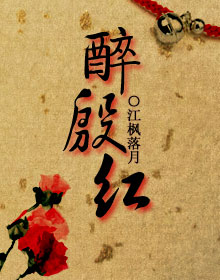 醉殷红
○江枫落月